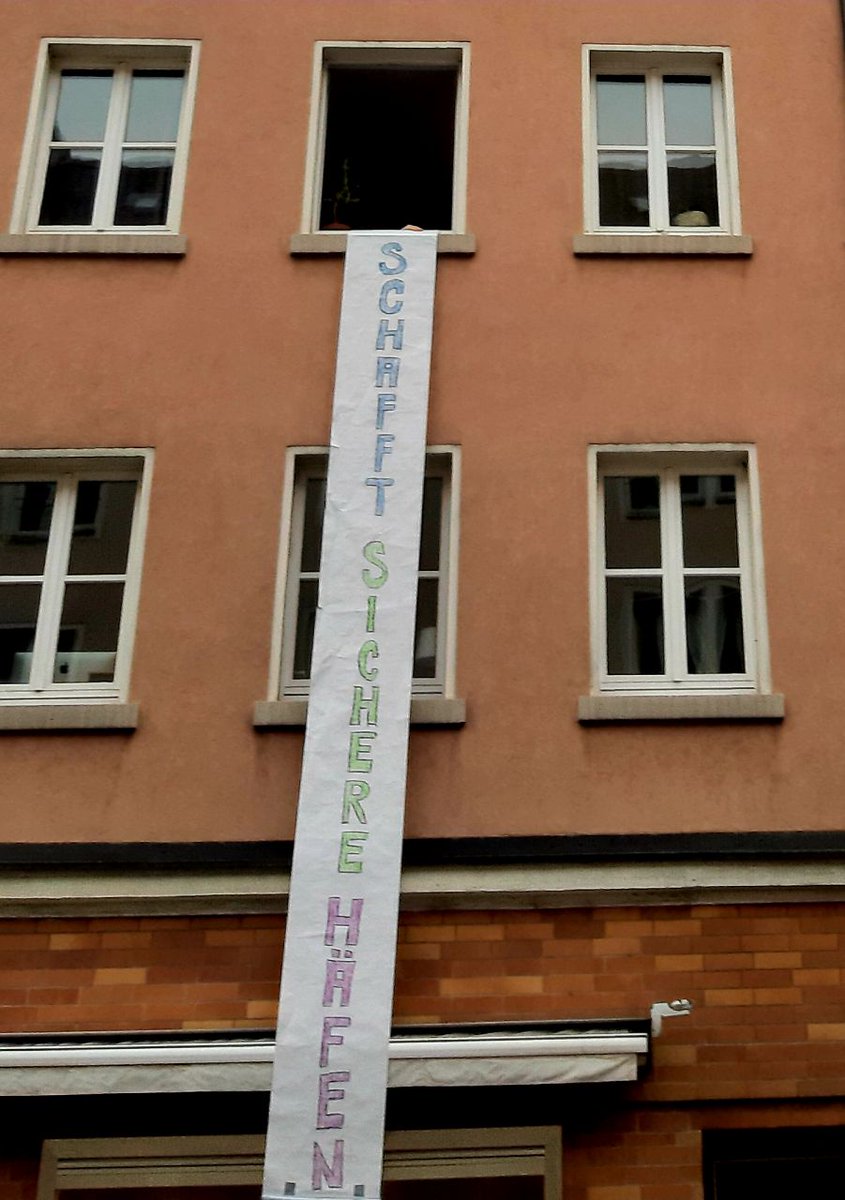 SCHAFFT SICHERE HÄFEN